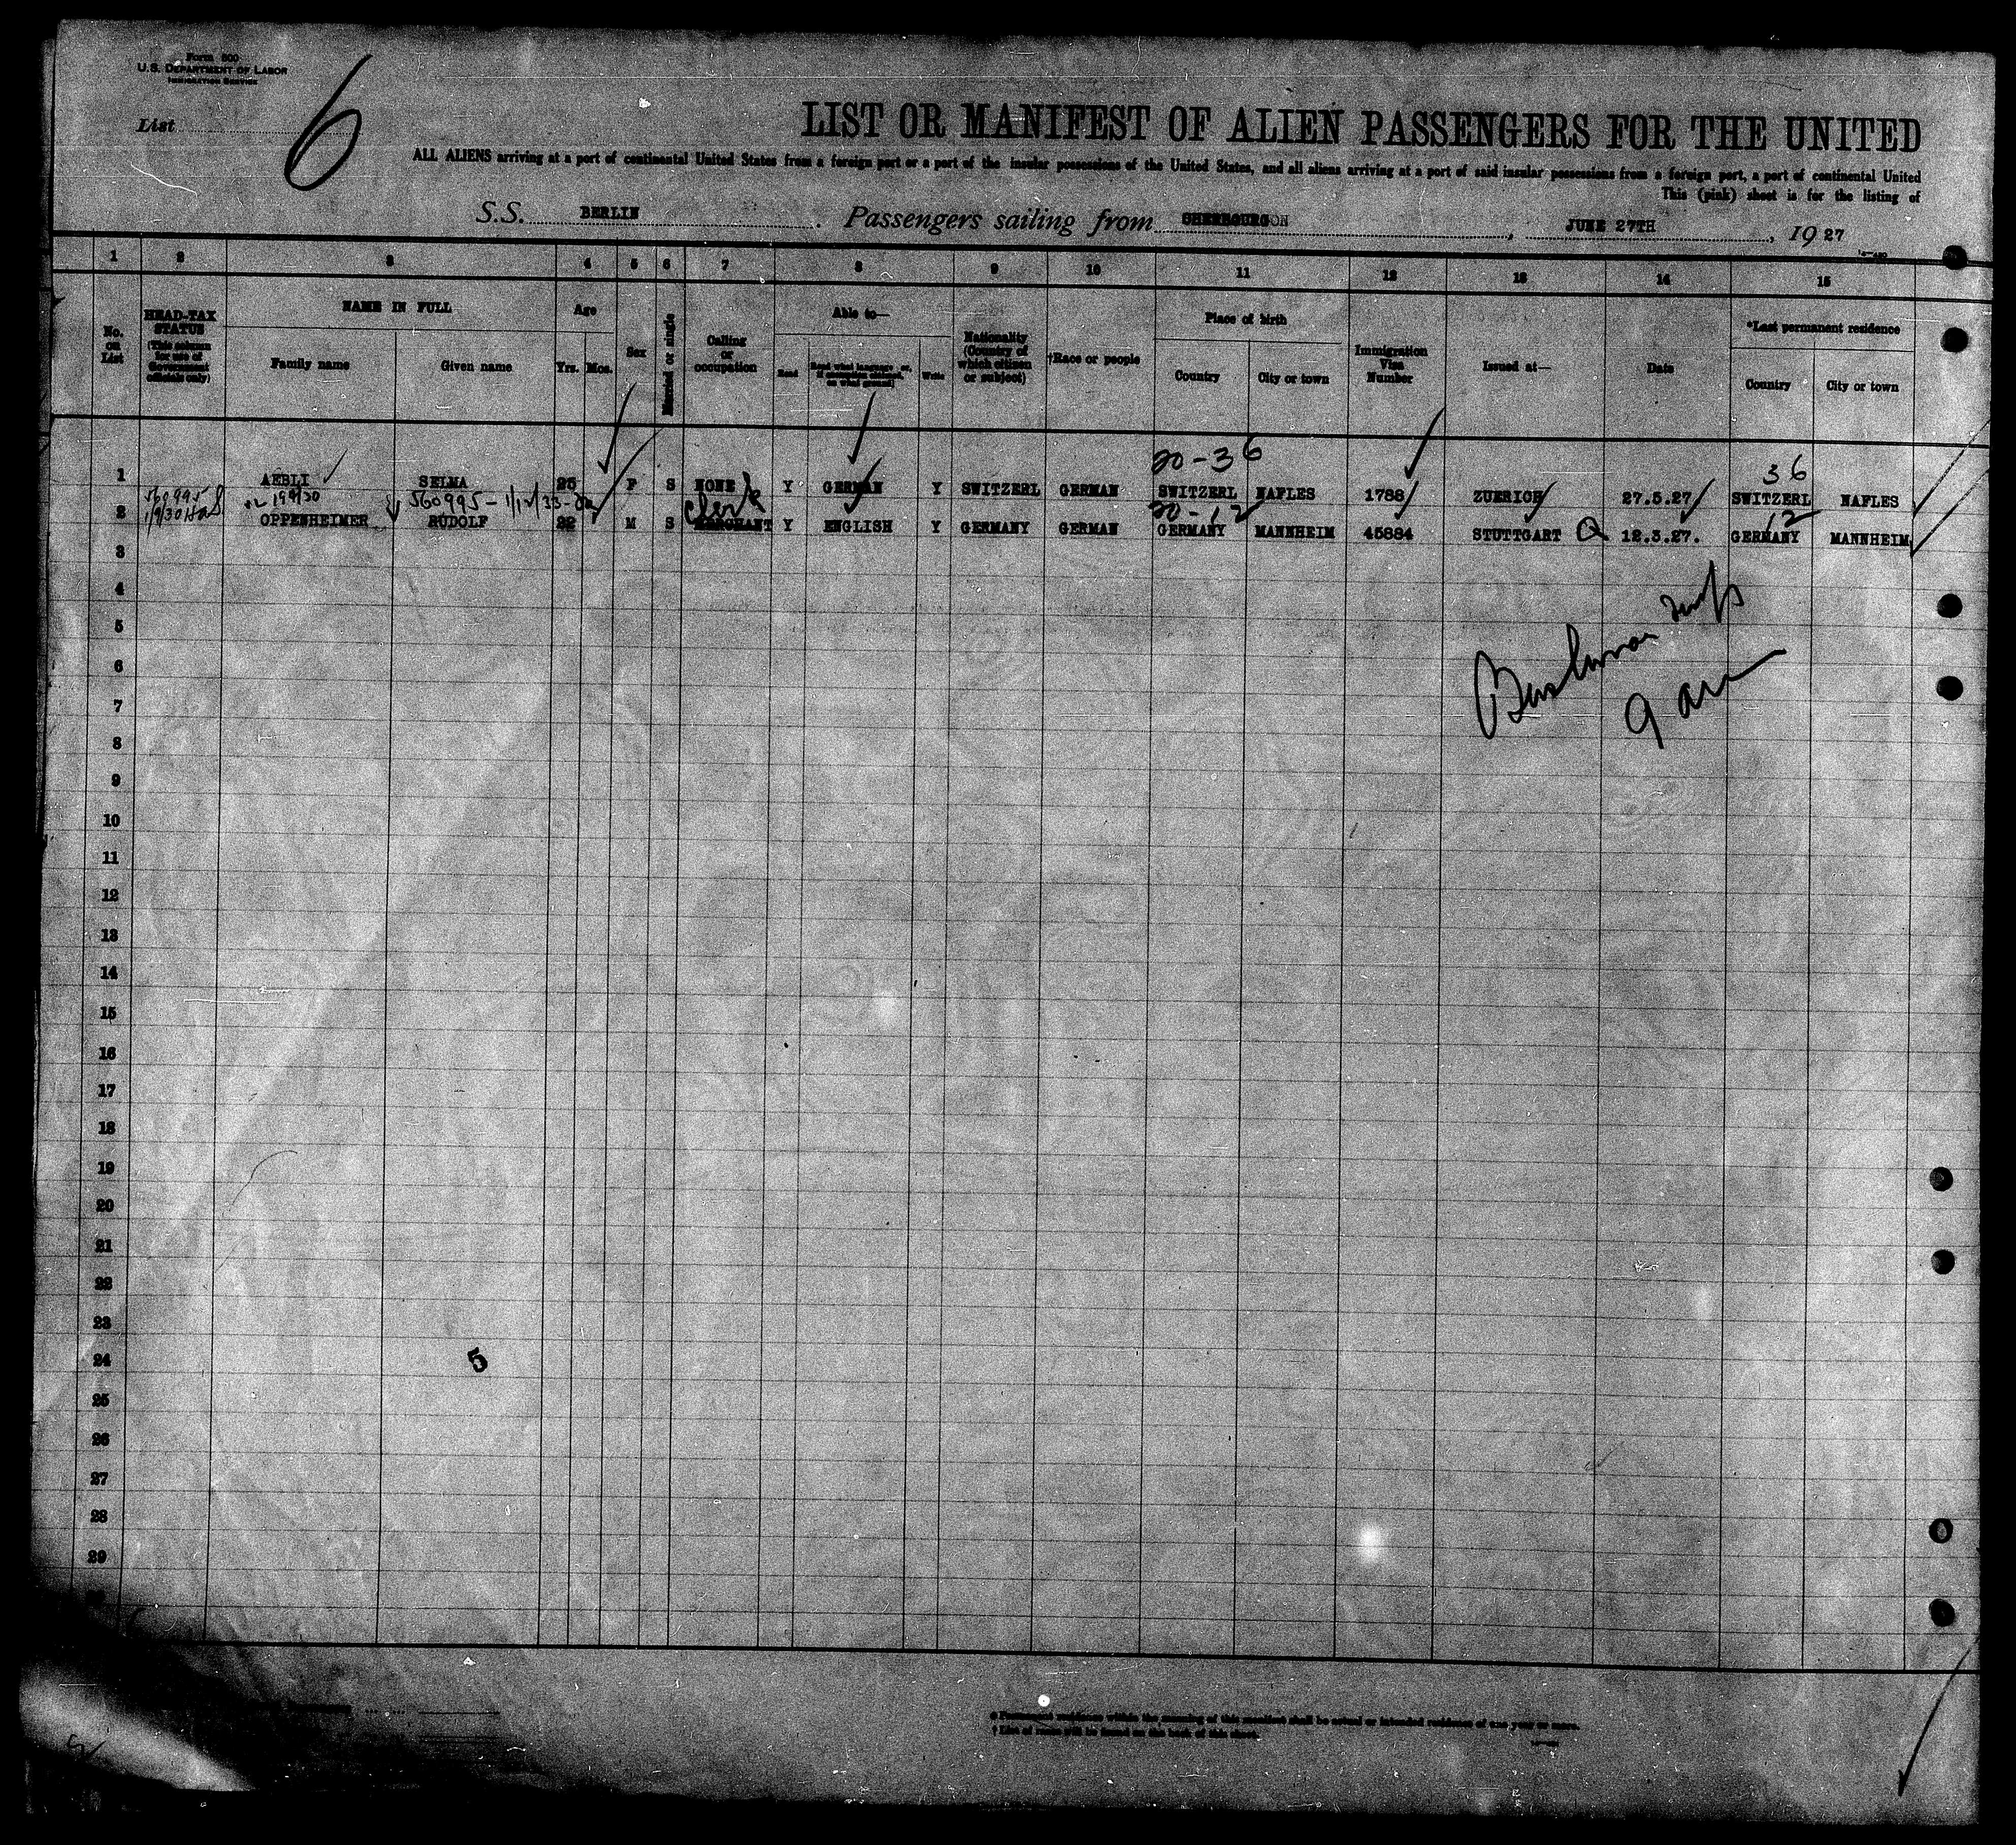 Form 500
U.S. DEPARTMENT OF LABOR
IMMIGRATION SERVICE
List 6
LIST OR MANIFEST OF ALIEN PASSENGERS FOR THE UNITED
ALL ALIENS arriving at a port of continental United States from a foreign port or a port of the insular possessions of the United States, and all aliens arriving at a port of said insular possessions from a foreign port, a port of continental United
This (pink) sheet is for the listing of
S.S. BERLIN. Passengers sailing from CHERBOURG ON, JUNE 27TH, 1927
1 2 3 4 5 6 7 8 9 10 11 12 13 14 15
No. on List
HEAD-TAX STATUS (This column for use of Government officials only)
NAME IN FULL
Family name Given name
Age
Yrs. Mos.
Sex
Married or single
Calling or occupation
Able to—
Read Read what language or, if exemption claimed, on what ground Write
Nationality (Country of which citizen or subject)
†Race or people
Place of birth
Country City or town
Immigration Visa Number
Issued at—
Date
*Last permanent residence
Country City or town
20-36 36
1 AEBLI SELMA 25 F S NONE Y GERMAN Y SWITZERL GERMAN SWITZERL NAFLES 1788 ZUERICH 27.5.27 SWITZERL NAFLES
560995 560995-1/12/33- Clerk 20-12 12
2 OPPENHEIMER RUDOLF 22 M S MERCHANT Y ENGLISH Y GERMANY GERMAN GERMANY MANNHEIM 45884 STUTTGART Q 12.3.27. GERMANY MANNHEIM
3
4
5
6
7
8
9
10
11
12
13
14
15
16
17
18
19
20
21
22
23
24
5
25
26
27
28
29
* Permanent residence within the meaning of this manifest shall be actual or intended residence of one year or more.
† List of races will be found on the back of this sheet.